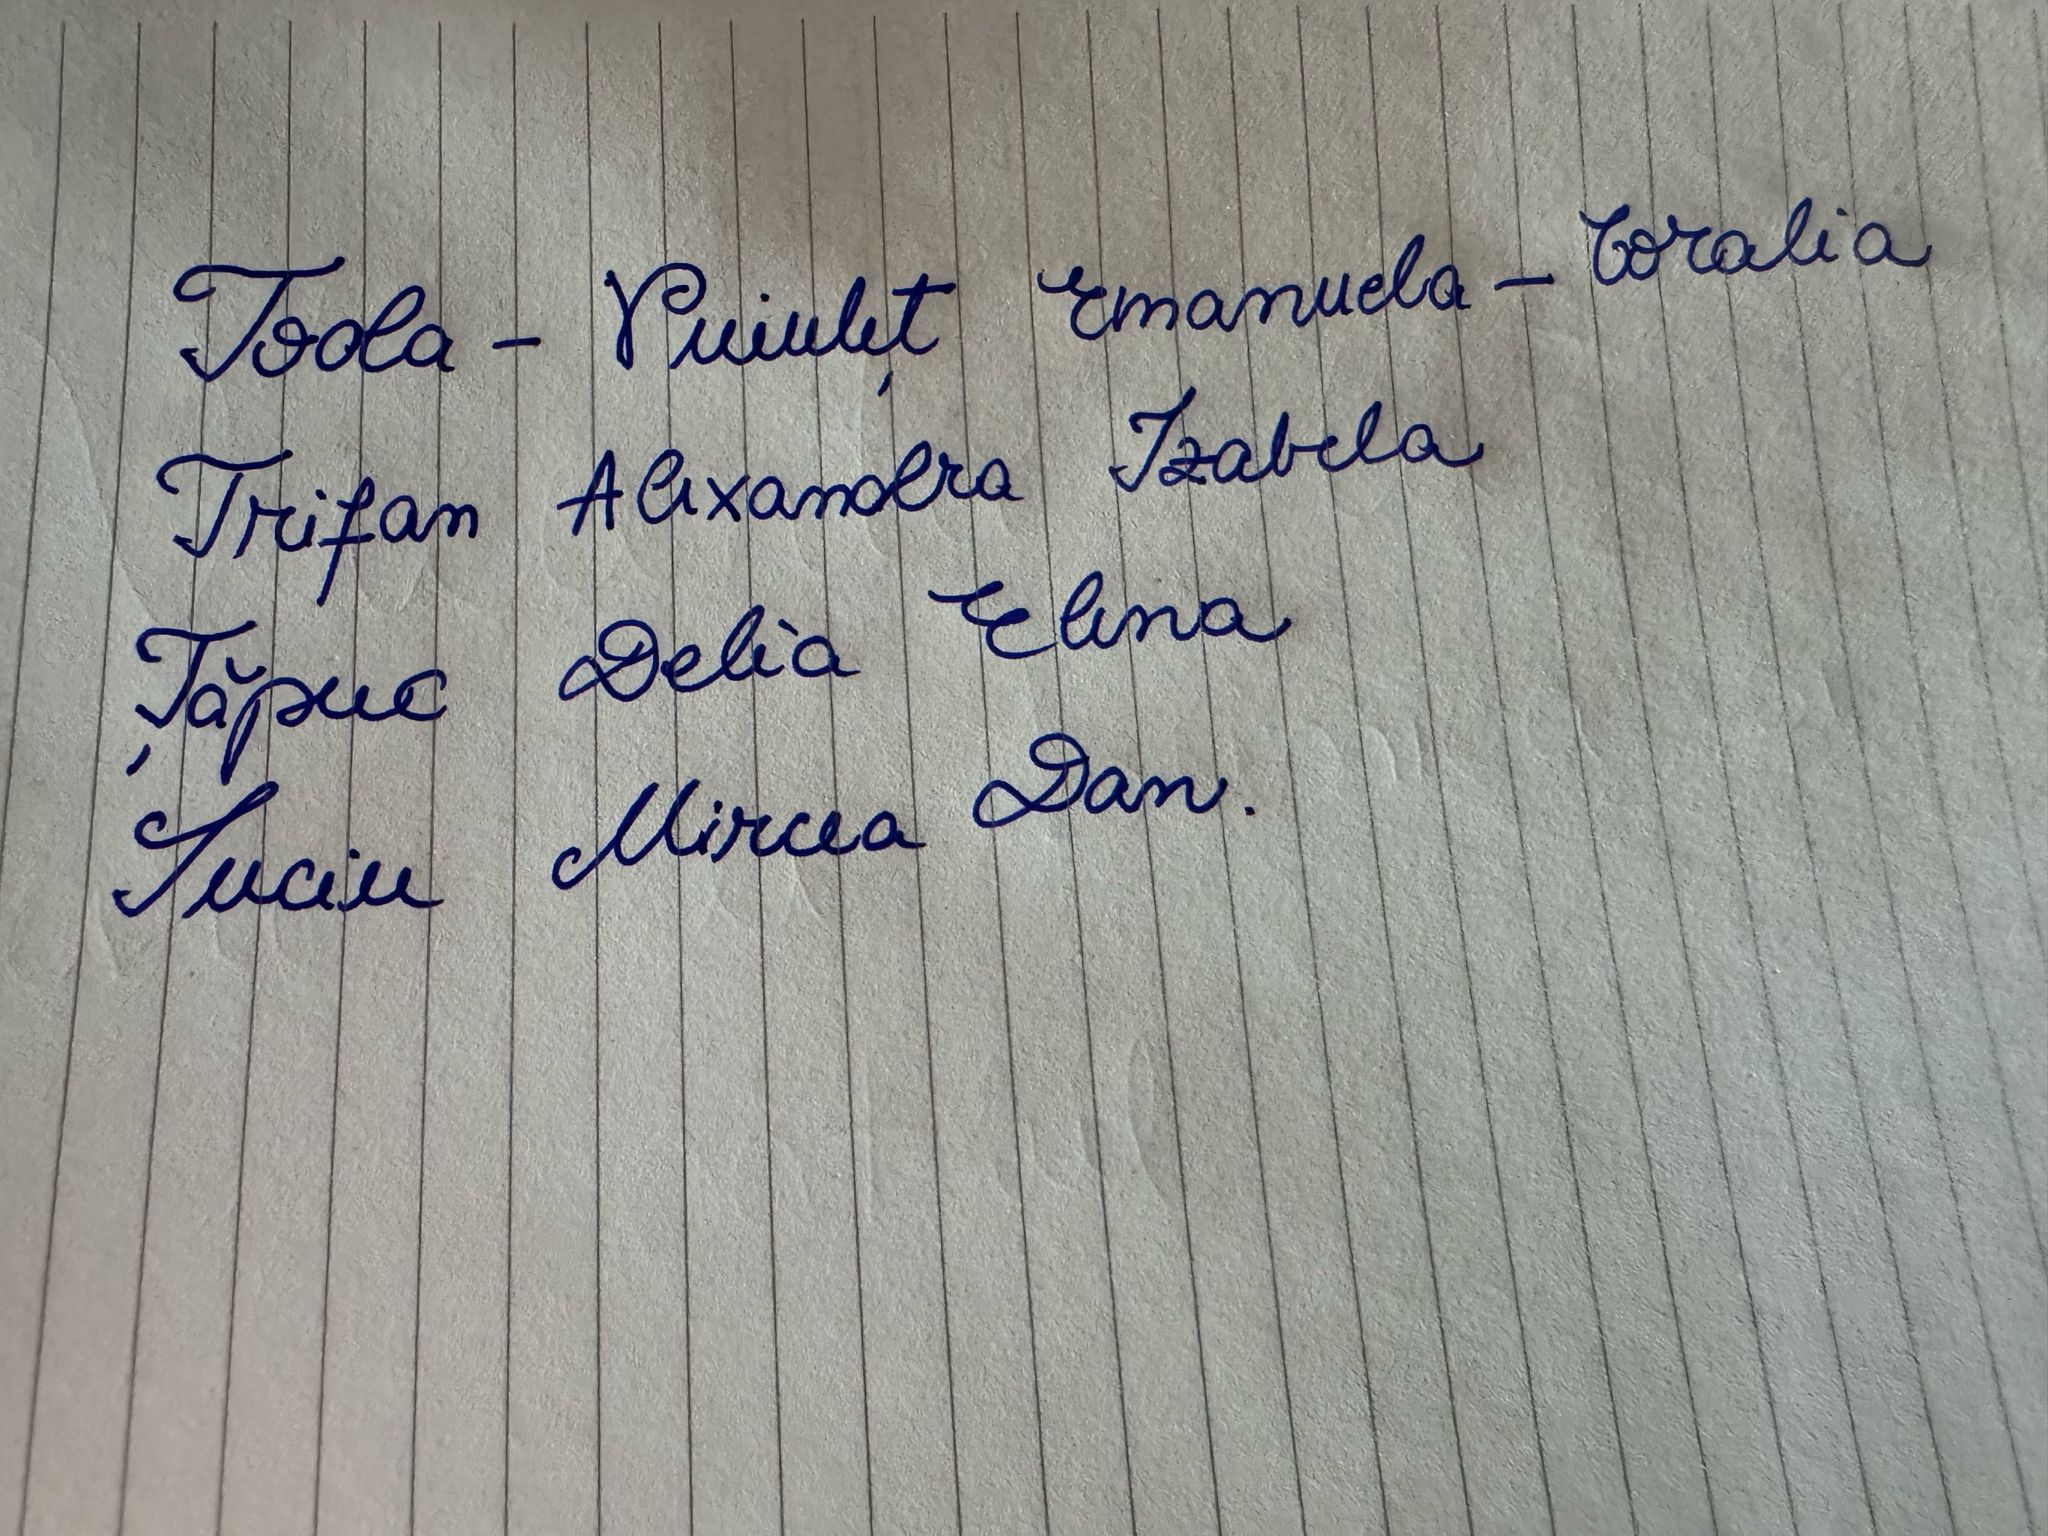 Toola - Puiuleț Emanuela - Coralia
Trifan Alexandra Izabela
Țăpuc Delia Elena
Suciu Mircea Dan.